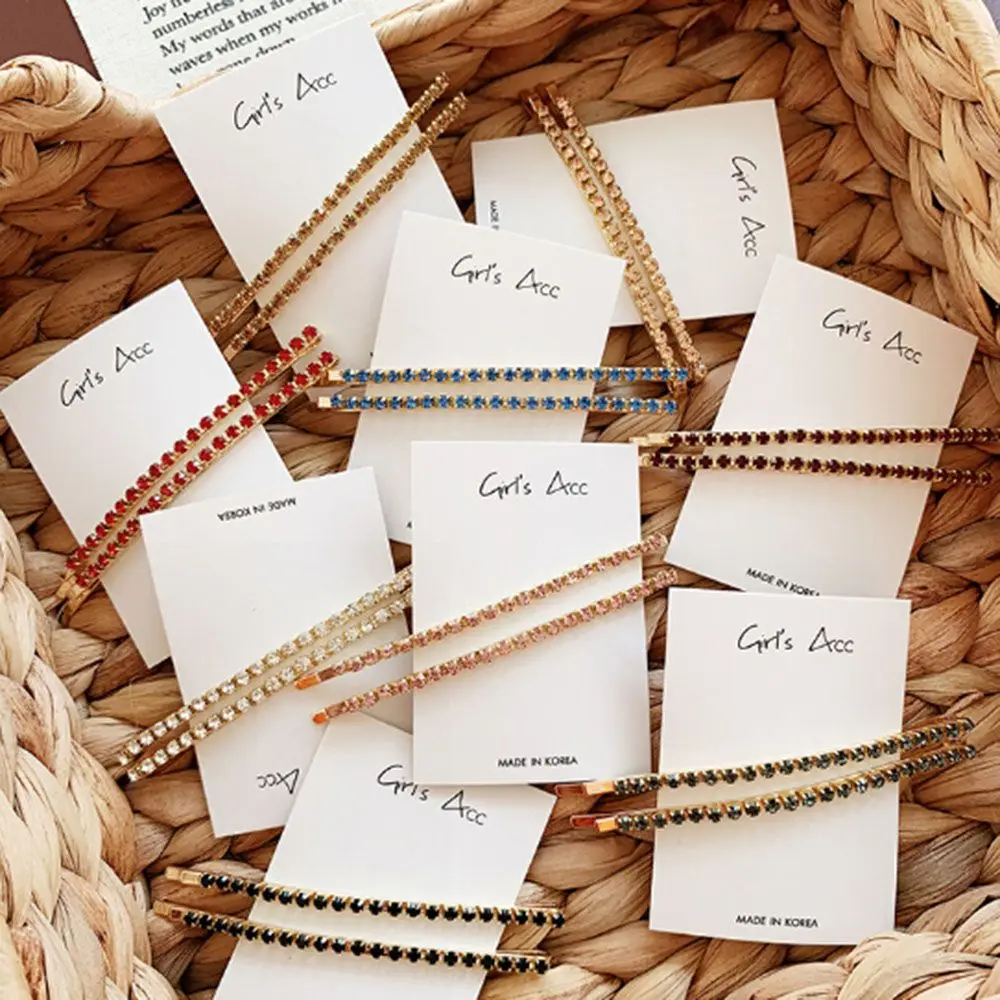 Joy fr
numberless
My words that are
waves when my wor
down
Girl's Acc
Girl's Acc
MADE
Girl's Acc
Girl's Acc
Girl's Acc
MADE IN KOREA
Girl's Acc
MADE IN KOREA
MADE IN KOREA
Girl's Acc
MADE IN KOREA
Acc
Girl's Acc